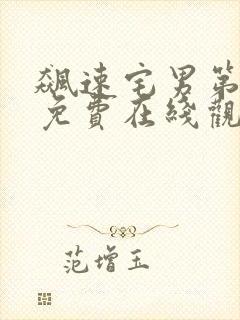 飆速宅男第
免費在綫觀
范增玉